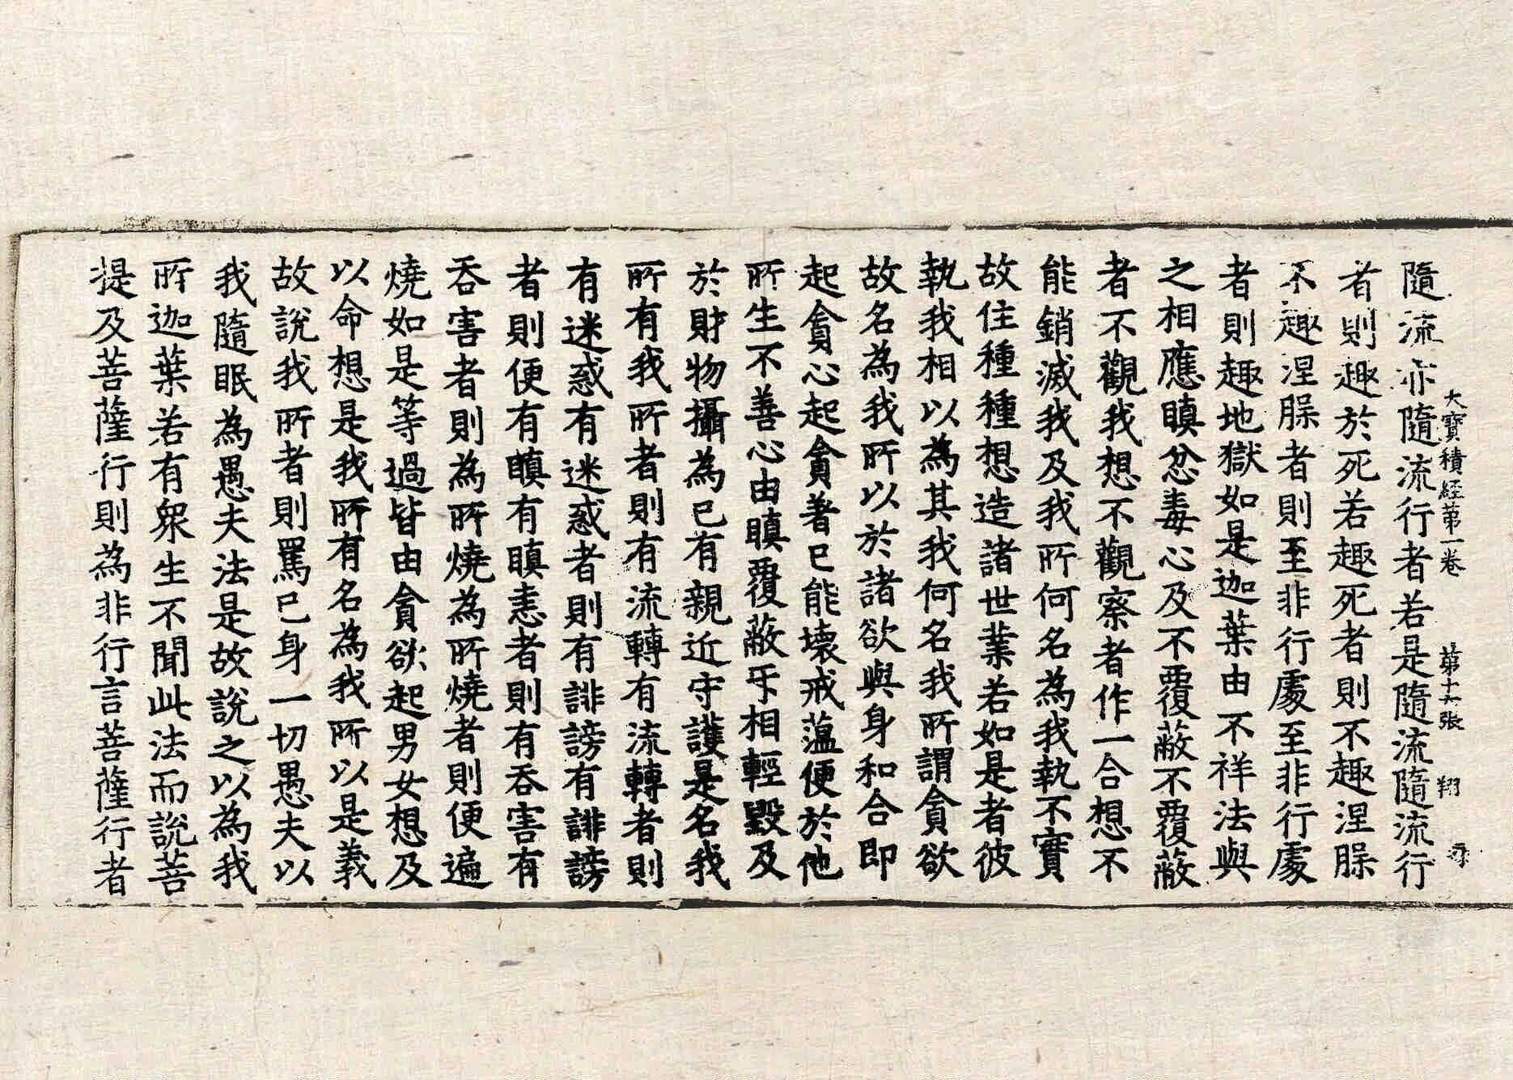 大寶積經第一卷　第十六張　翔
隨流亦隨流行者若是隨流隨流行
者則趣於死若趣死者則不趣涅脲
不趣涅脲者則至非行處至非行處
者則趣地獄如是迦葉由不祥法與
之相應瞋忿毒心及不覆蔽不覆蔽
者不觀我想不觀察者作一合想不
能銷滅我及我所何名為我執不實
故住種種想造諸世業若如是者彼
執我相以為其我何名我所謂貪欲
故名為我所以於諸欲與身和合即
起貪心起貪著已能壞戒蕰便於他
所生不善心由瞋覆蔽乎相輕毀及
於財物攝為已有親近守護是名我
所有我所者則有流轉有流轉者則
有迷惑有迷惑者則有誹謗有誹謗
者則便有瞋有瞋恚者則有吞害有
吞害者則為所燒為所燒者則便遍
燒如是等過皆由貪欲起男女想及
以命想是我所有名為我所以是義
故說我所者則罵已身一切愚夫以
我隨眠為愚夫法是故說之以為我
所迦葉若有衆生不聞此法而說菩
提及菩薩行則為非行言菩薩行者